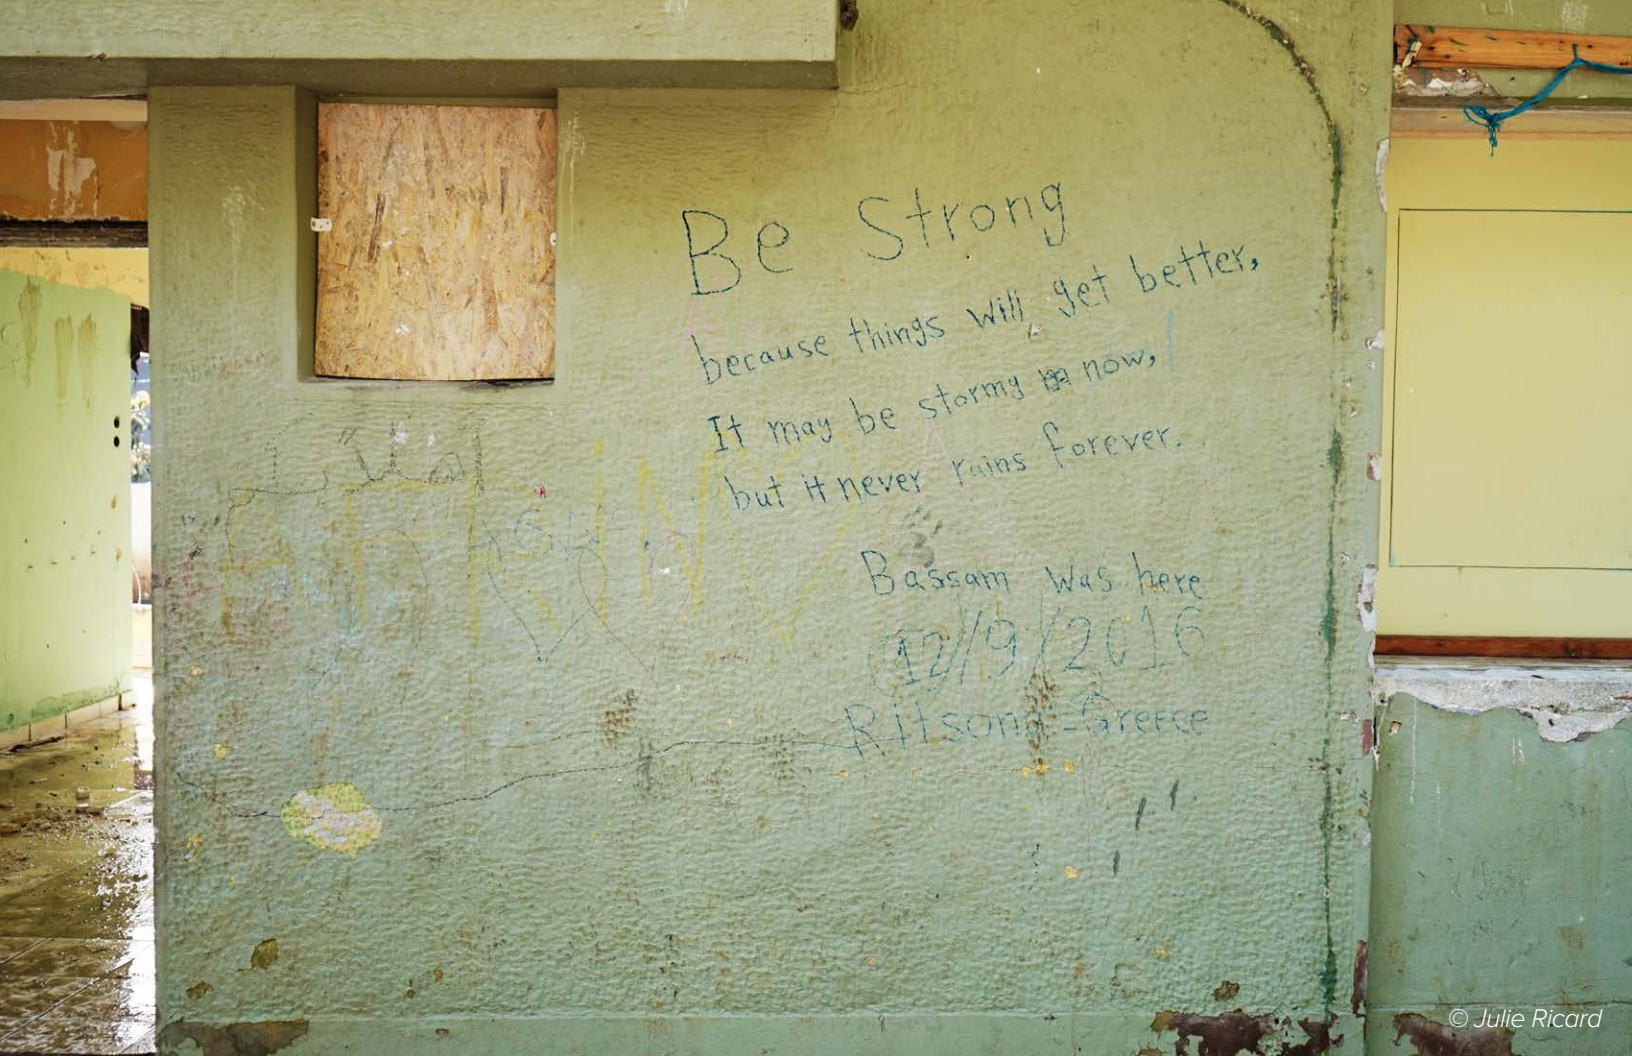 Be Strong
because things will get better,
It may be stormy now,
but it never rains forever.
Bassam was here
12/9/2016
Ritsona-Greece
© Julie Ricard